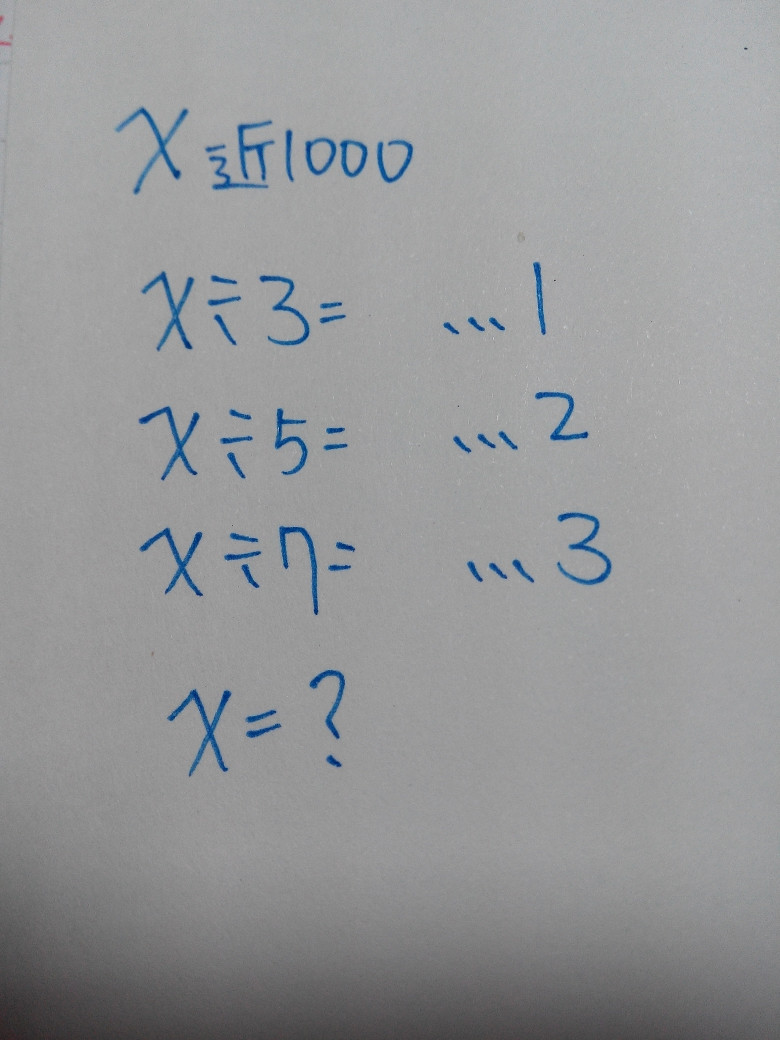 x近1000
x÷3= …1
x÷5= …2
x÷7= …3
x=?